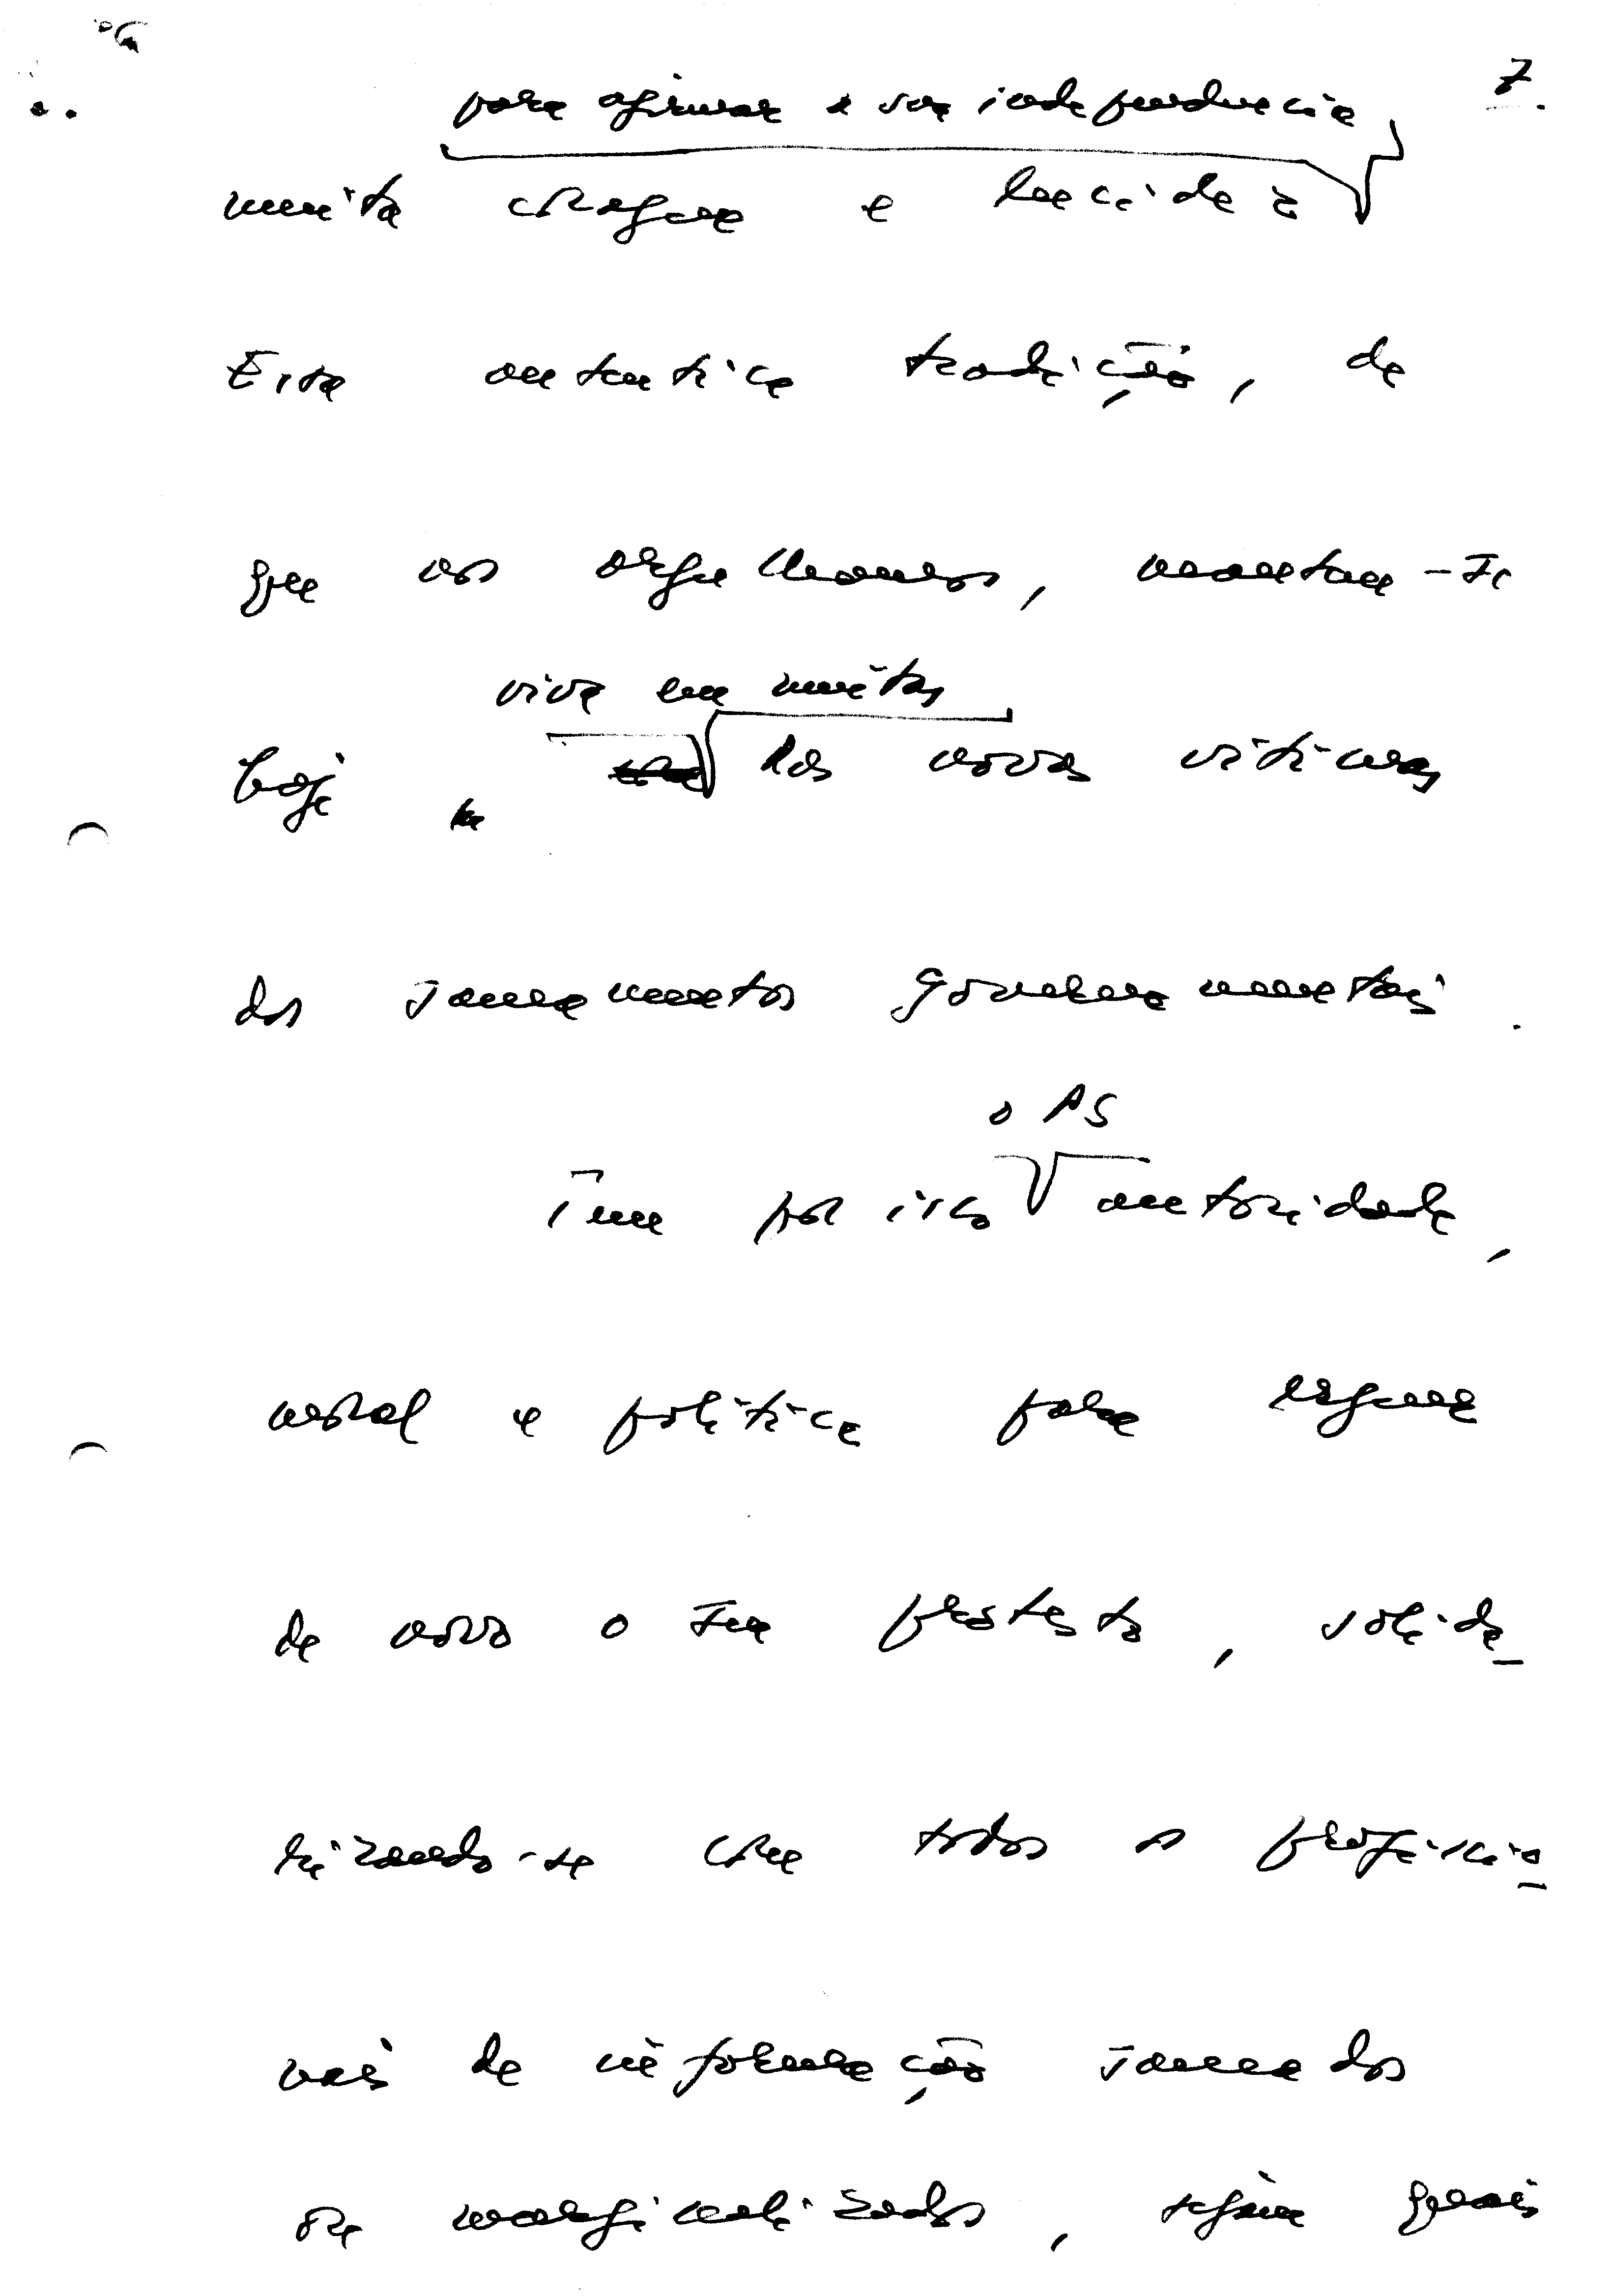 7.
para afirmar a sua independência
muita coragem e lucidez
Esta autêntica tradição, de
que nos orgulhamos, mantem-se
viva em muitas
hoje das novas vítimas
dos saneamentos governamentais.
o PS
Tem por isso autoridade,
moral e política para erguer
de novo o seu protesto, solida_
rizando-se com todos os profissio_
nais de informação saneados
ou marginalizados, sejam quais